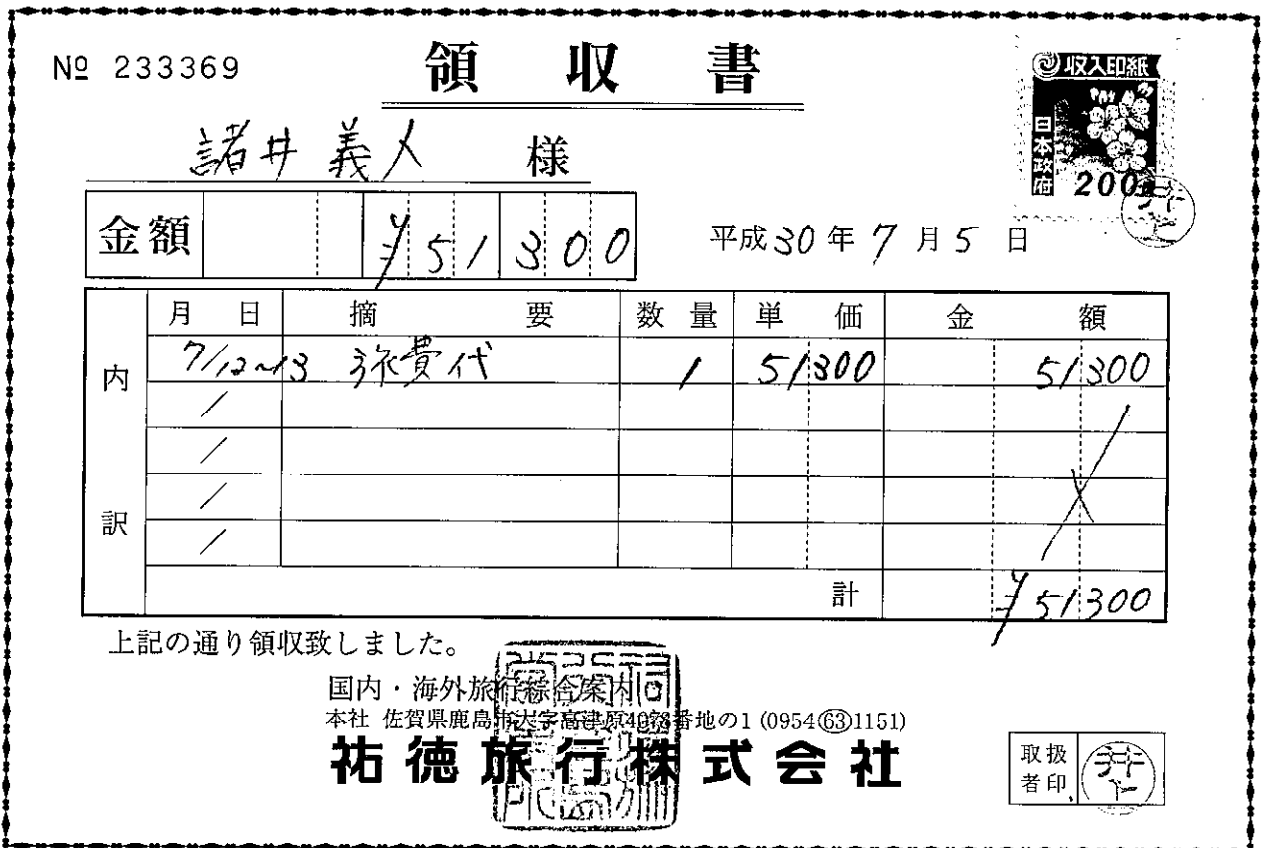 № 233369
領収書
収入印紙
日本政府
200
諸井義人 様
金額 ¥51300
平成30年7月5日
内訳
月日 摘要 数量 単価 金額
7/12~13 旅費代 1 51300 51300
/
/
/
/
計 ¥51300
上記の通り領収致しました。
国内・海外旅行綜合案内所
本社 佐賀県鹿島市大字高津原4073番地の1 (0954(63)1151)
祐徳旅行株式会社
取扱者印